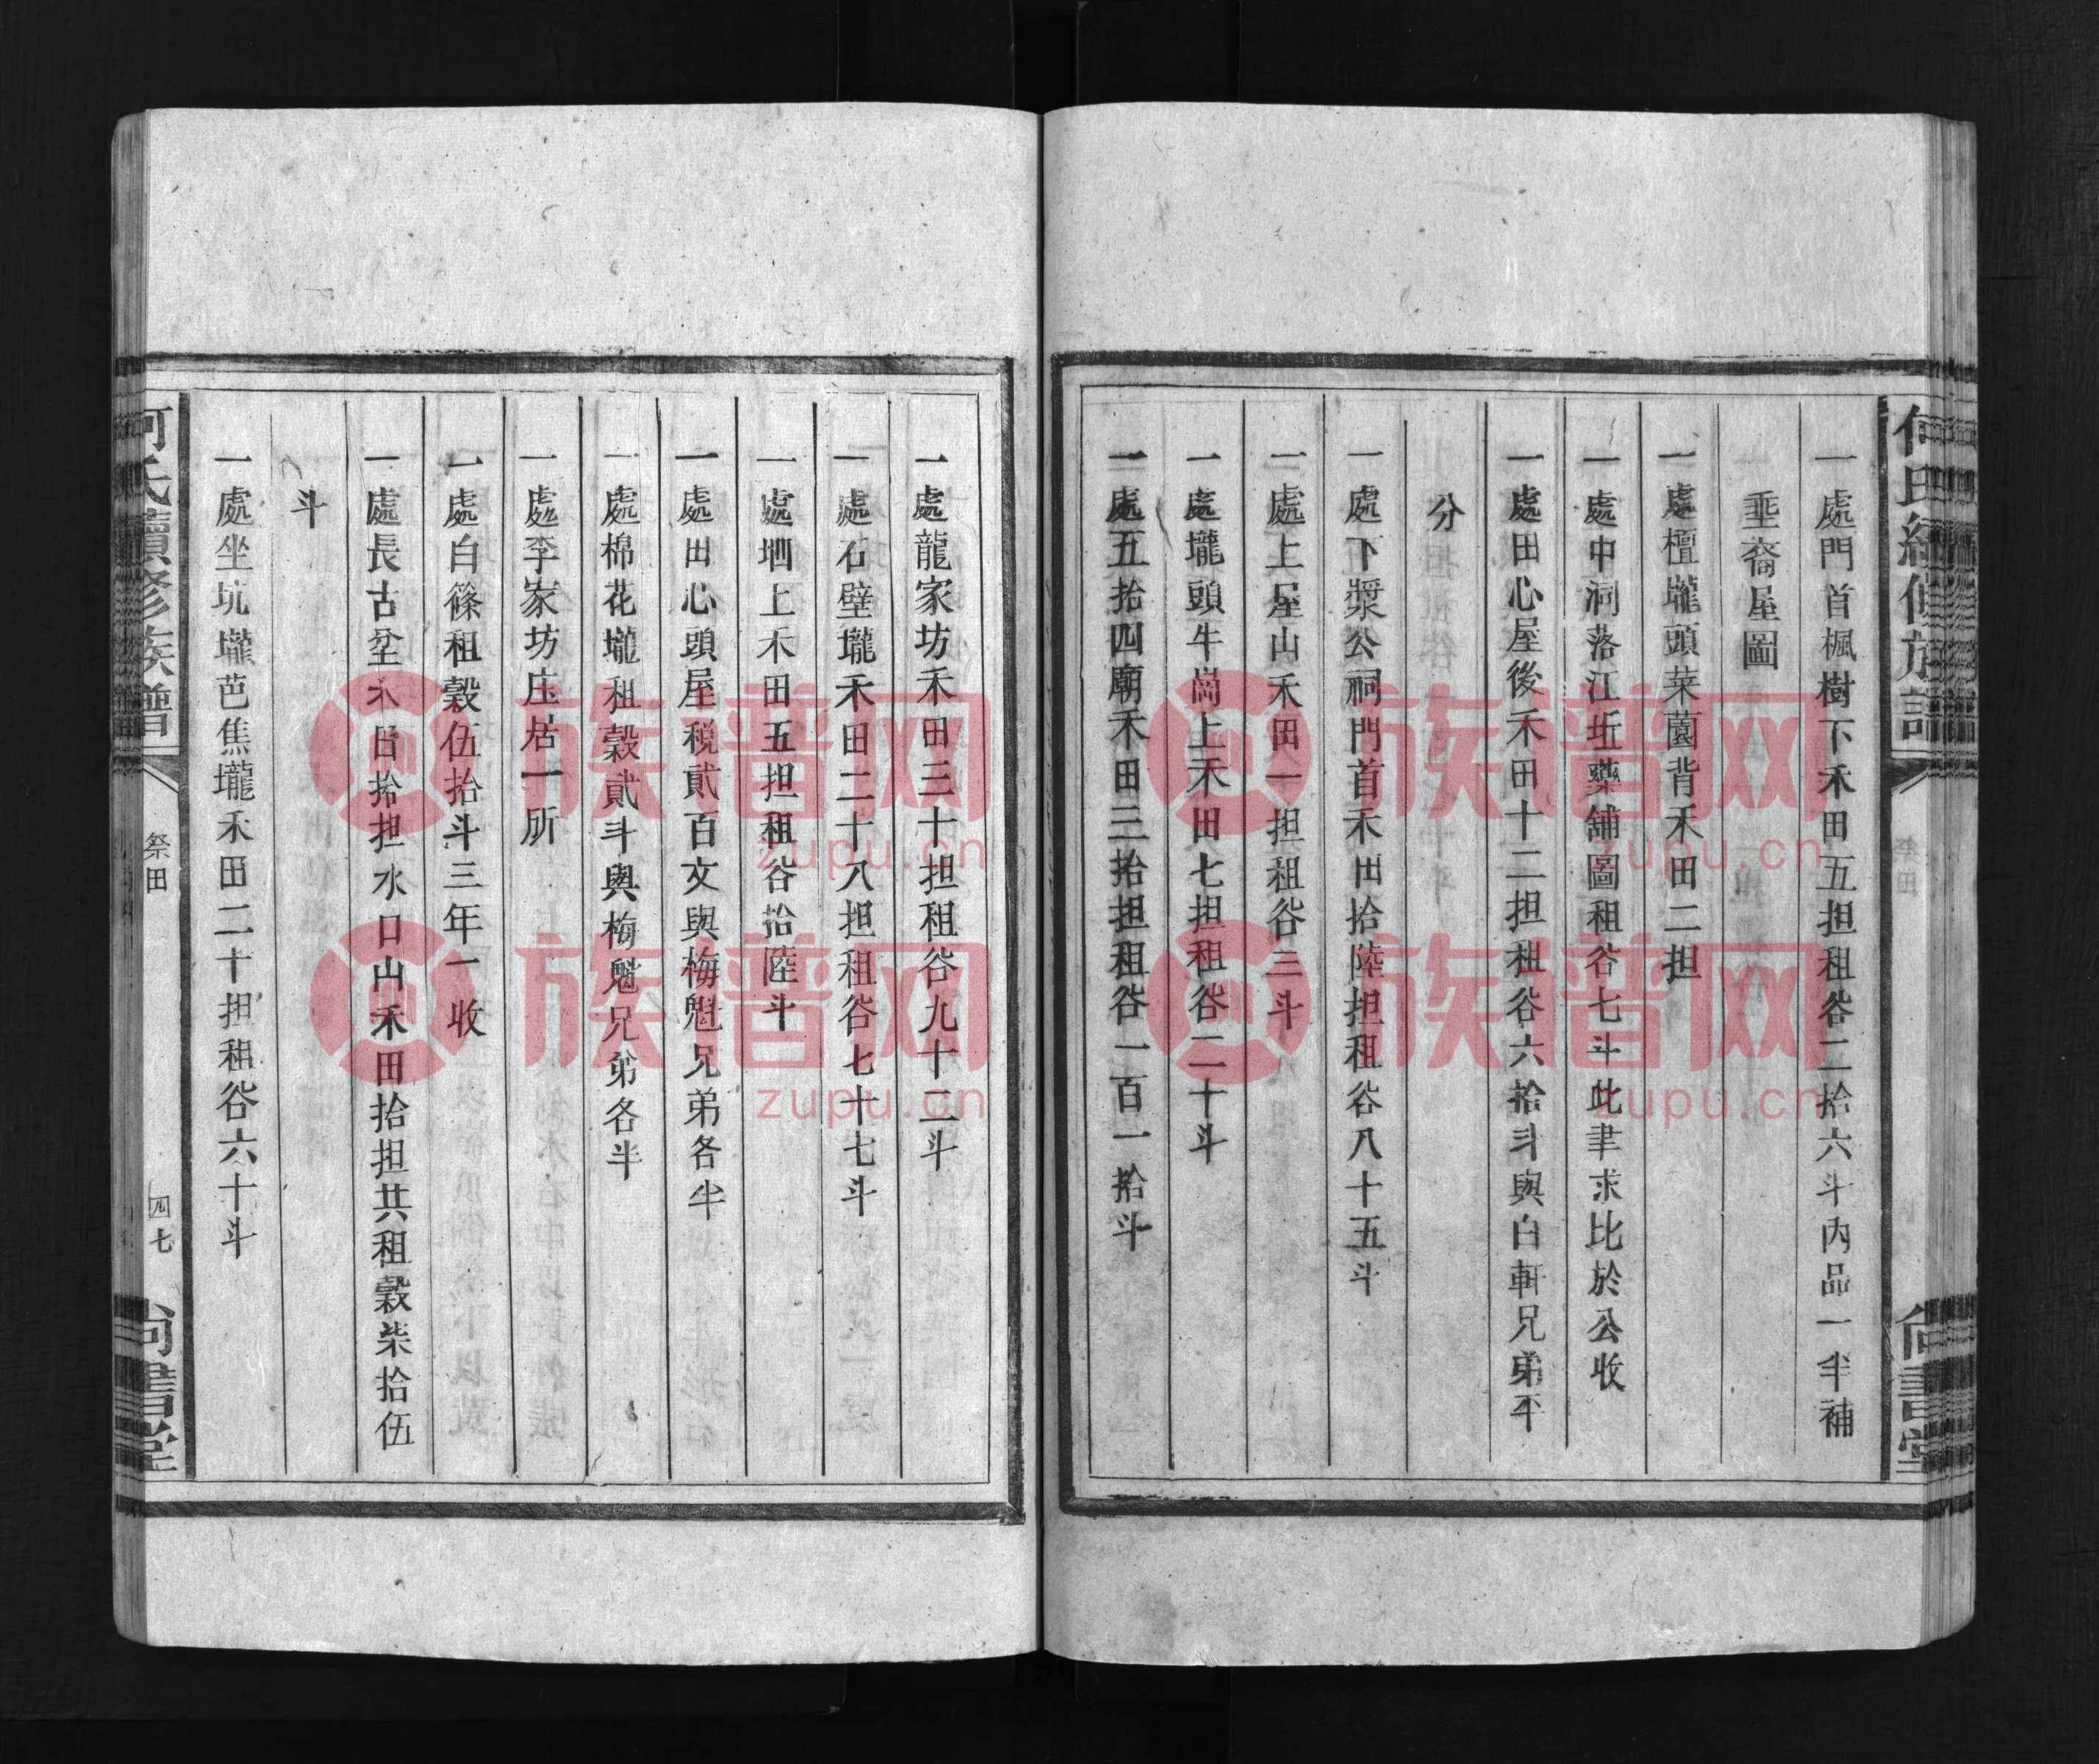 何氏續修族譜
祭田
尙書堂
一處門首楓樹下禾田五担租谷二拾六斗內品一半補
埀裔屋圖
一處檀壠頭菜薗背禾田二担
一處中洞落江坵藥舖圖租谷七斗此聿求比於公收
一處田心屋後禾田十二担租谷六拾斗與白軒兄弟平
分
一處下漿公祠門首禾田拾陸担租谷八十五斗
一處上屋山禾田一担租谷三斗
一處壠頭牛崗上禾田七担租谷二十斗
一處五拾四廟禾田三拾担租谷一百一拾斗
一處龍家坊禾田三十担租谷九十二斗
一處石壁壠禾田二十八担租谷七十七斗
一處垇上禾田五担租谷拾陸斗
一處田心頭屋稅貳百文與梅魁兄弟各半
一處棉花壠租穀貳斗與梅魁兄弟各半
一處李家坊庄居一所
一處白篠租穀伍拾斗三年一收
一處長古坌禾田拾担水口山禾田拾担共租穀柒拾伍
斗
一處坐坑壠芭焦壠禾田二十担租谷六十斗
何氏續修族譜
祭田
四七
尙書堂
族譜网
zupu.cn
族譜网
zupu.cn
族譜网
zupu.cn
族譜网
zupu.cn